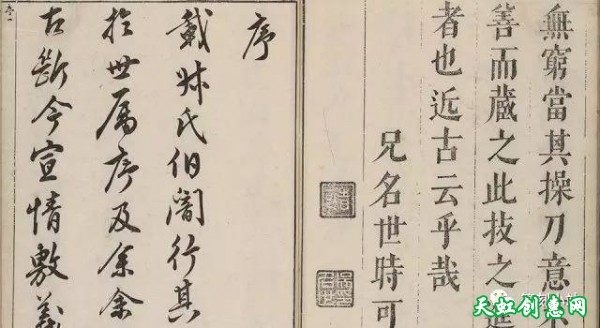 無窮當其操刀意
善而蔵之此技之進
者也近古云乎哉
兄名世時可
序
氏伯闇行其
於世属序及余余
古斷今宣情敷義
天虹创意网